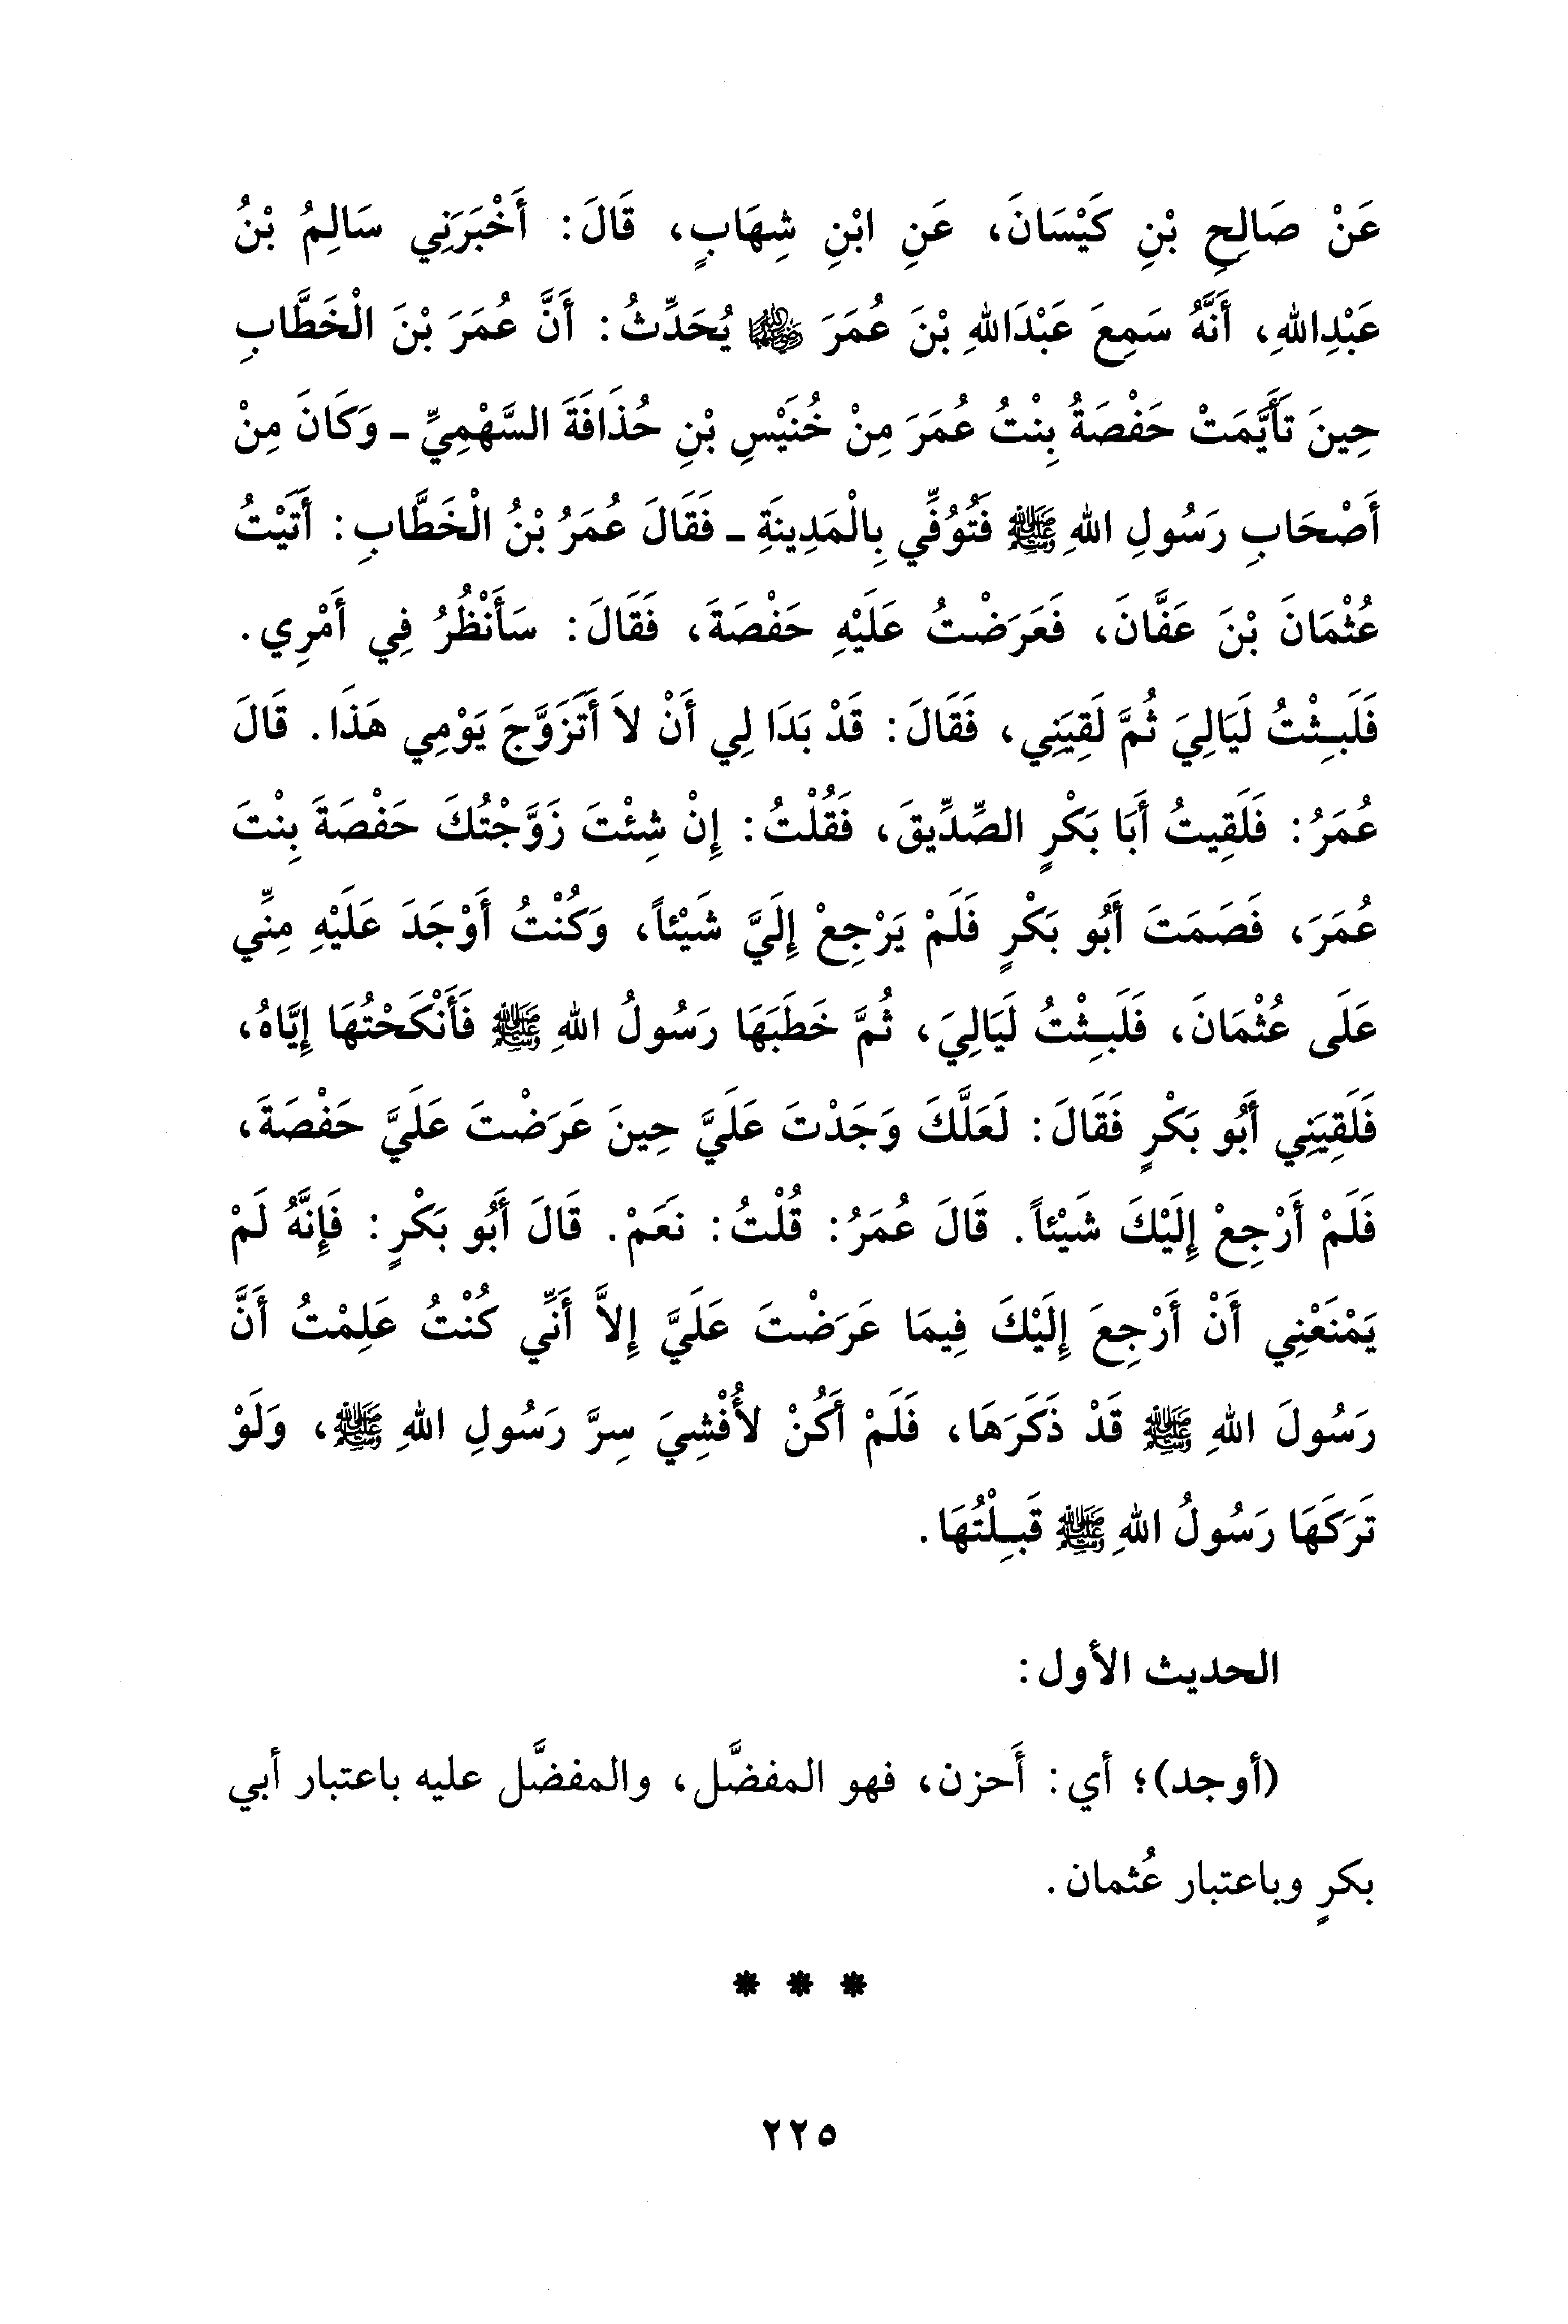 عَنْ صَالِحِ بْنِ كَيْسَانَ، عَنِ ابْنِ شِهَابٍ، قَالَ: أَخْبَرَنِي سَالِمُ بْنُ
عَبْدِاللهِ، أَنَّهُ سَمِعَ عَبْدَاللهِ بْنَ عُمَرَ ﵄ يُحَدِّثُ: أَنَّ عُمَرَ بْنَ الْخَطَّابِ
حِينَ تَأَيَّمَتْ حَفْصَةُ بِنْتُ عُمَرَ مِنْ خُنَيْسِ بْنِ حُذَافَةَ السَّهْمِيِّ - وَكَانَ مِنْ
أَصْحَابِ رَسُولِ اللهِ ﷺ فَتُوُفِّي بِالْمَدِينَةِ - فَقَالَ عُمَرُ بْنُ الْخَطَّابِ: أَتَيْتُ
عُثْمَانَ بْنَ عَفَّانَ، فَعَرَضْتُ عَلَيْهِ حَفْصَةَ، فَقَالَ: سَأَنْظُرُ فِي أَمْرِي.
فَلَبِثْتُ لَيَالِيَ ثُمَّ لَقِيَنِي، فَقَالَ: قَدْ بَدَا لِي أَنْ لاَ أَتَزَوَّجَ يَوْمِي هَذَا. قَالَ
عُمَرُ: فَلَقِيتُ أَبَا بَكْرٍ الصِّدِّيقَ، فَقُلْتُ: إِنْ شِئْتَ زَوَّجْتُكَ حَفْصَةَ بِنْتَ
عُمَرَ، فَصَمَتَ أَبُو بَكْرٍ فَلَمْ يَرْجِعْ إِلَيَّ شَيْئاً، وَكُنْتُ أَوْجَدَ عَلَيْهِ مِنِّي
عَلَى عُثْمَانَ، فَلَبِثْتُ لَيَالِيَ، ثُمَّ خَطَبَهَا رَسُولُ اللهِ ﷺ فَأَنْكَحْتُهَا إِيَّاهُ،
فَلَقِيَنِي أَبُو بَكْرٍ فَقَالَ: لَعَلَّكَ وَجَدْتَ عَلَيَّ حِينَ عَرَضْتَ عَلَيَّ حَفْصَةَ،
فَلَمْ أَرْجِعْ إِلَيْكَ شَيْئاً. قَالَ عُمَرُ: قُلْتُ: نَعَمْ. قَالَ أَبُو بَكْرٍ: فَإِنَّهُ لَمْ
يَمْنَعْنِي أَنْ أَرْجِعَ إِلَيْكَ فِيمَا عَرَضْتَ عَلَيَّ إِلاَّ أَنِّي كُنْتُ عَلِمْتُ أَنَّ
رَسُولَ اللهِ ﷺ قَدْ ذَكَرَهَا، فَلَمْ أَكُنْ لأُفْشِيَ سِرَّ رَسُولِ اللهِ ﷺ، وَلَوْ
تَرَكَهَا رَسُولُ اللهِ ﷺ قَبِلْتُهَا.
الحديث الأول:
(أوجد)؛ أي: أَحزن، فهو المفضَّل، والمفضَّل عليه باعتبار أبي
بكرٍ وباعتبار عُثمان.
* * *
٢٢٥